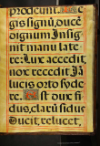 prodeunt.
gis signũ, duce
dignum Insig
nit manu late
re: Lux accedit
nox recedit Iã
lucis orto syde
re. Est dux fi
dus, clarũ sidus
Ducit, relucet,